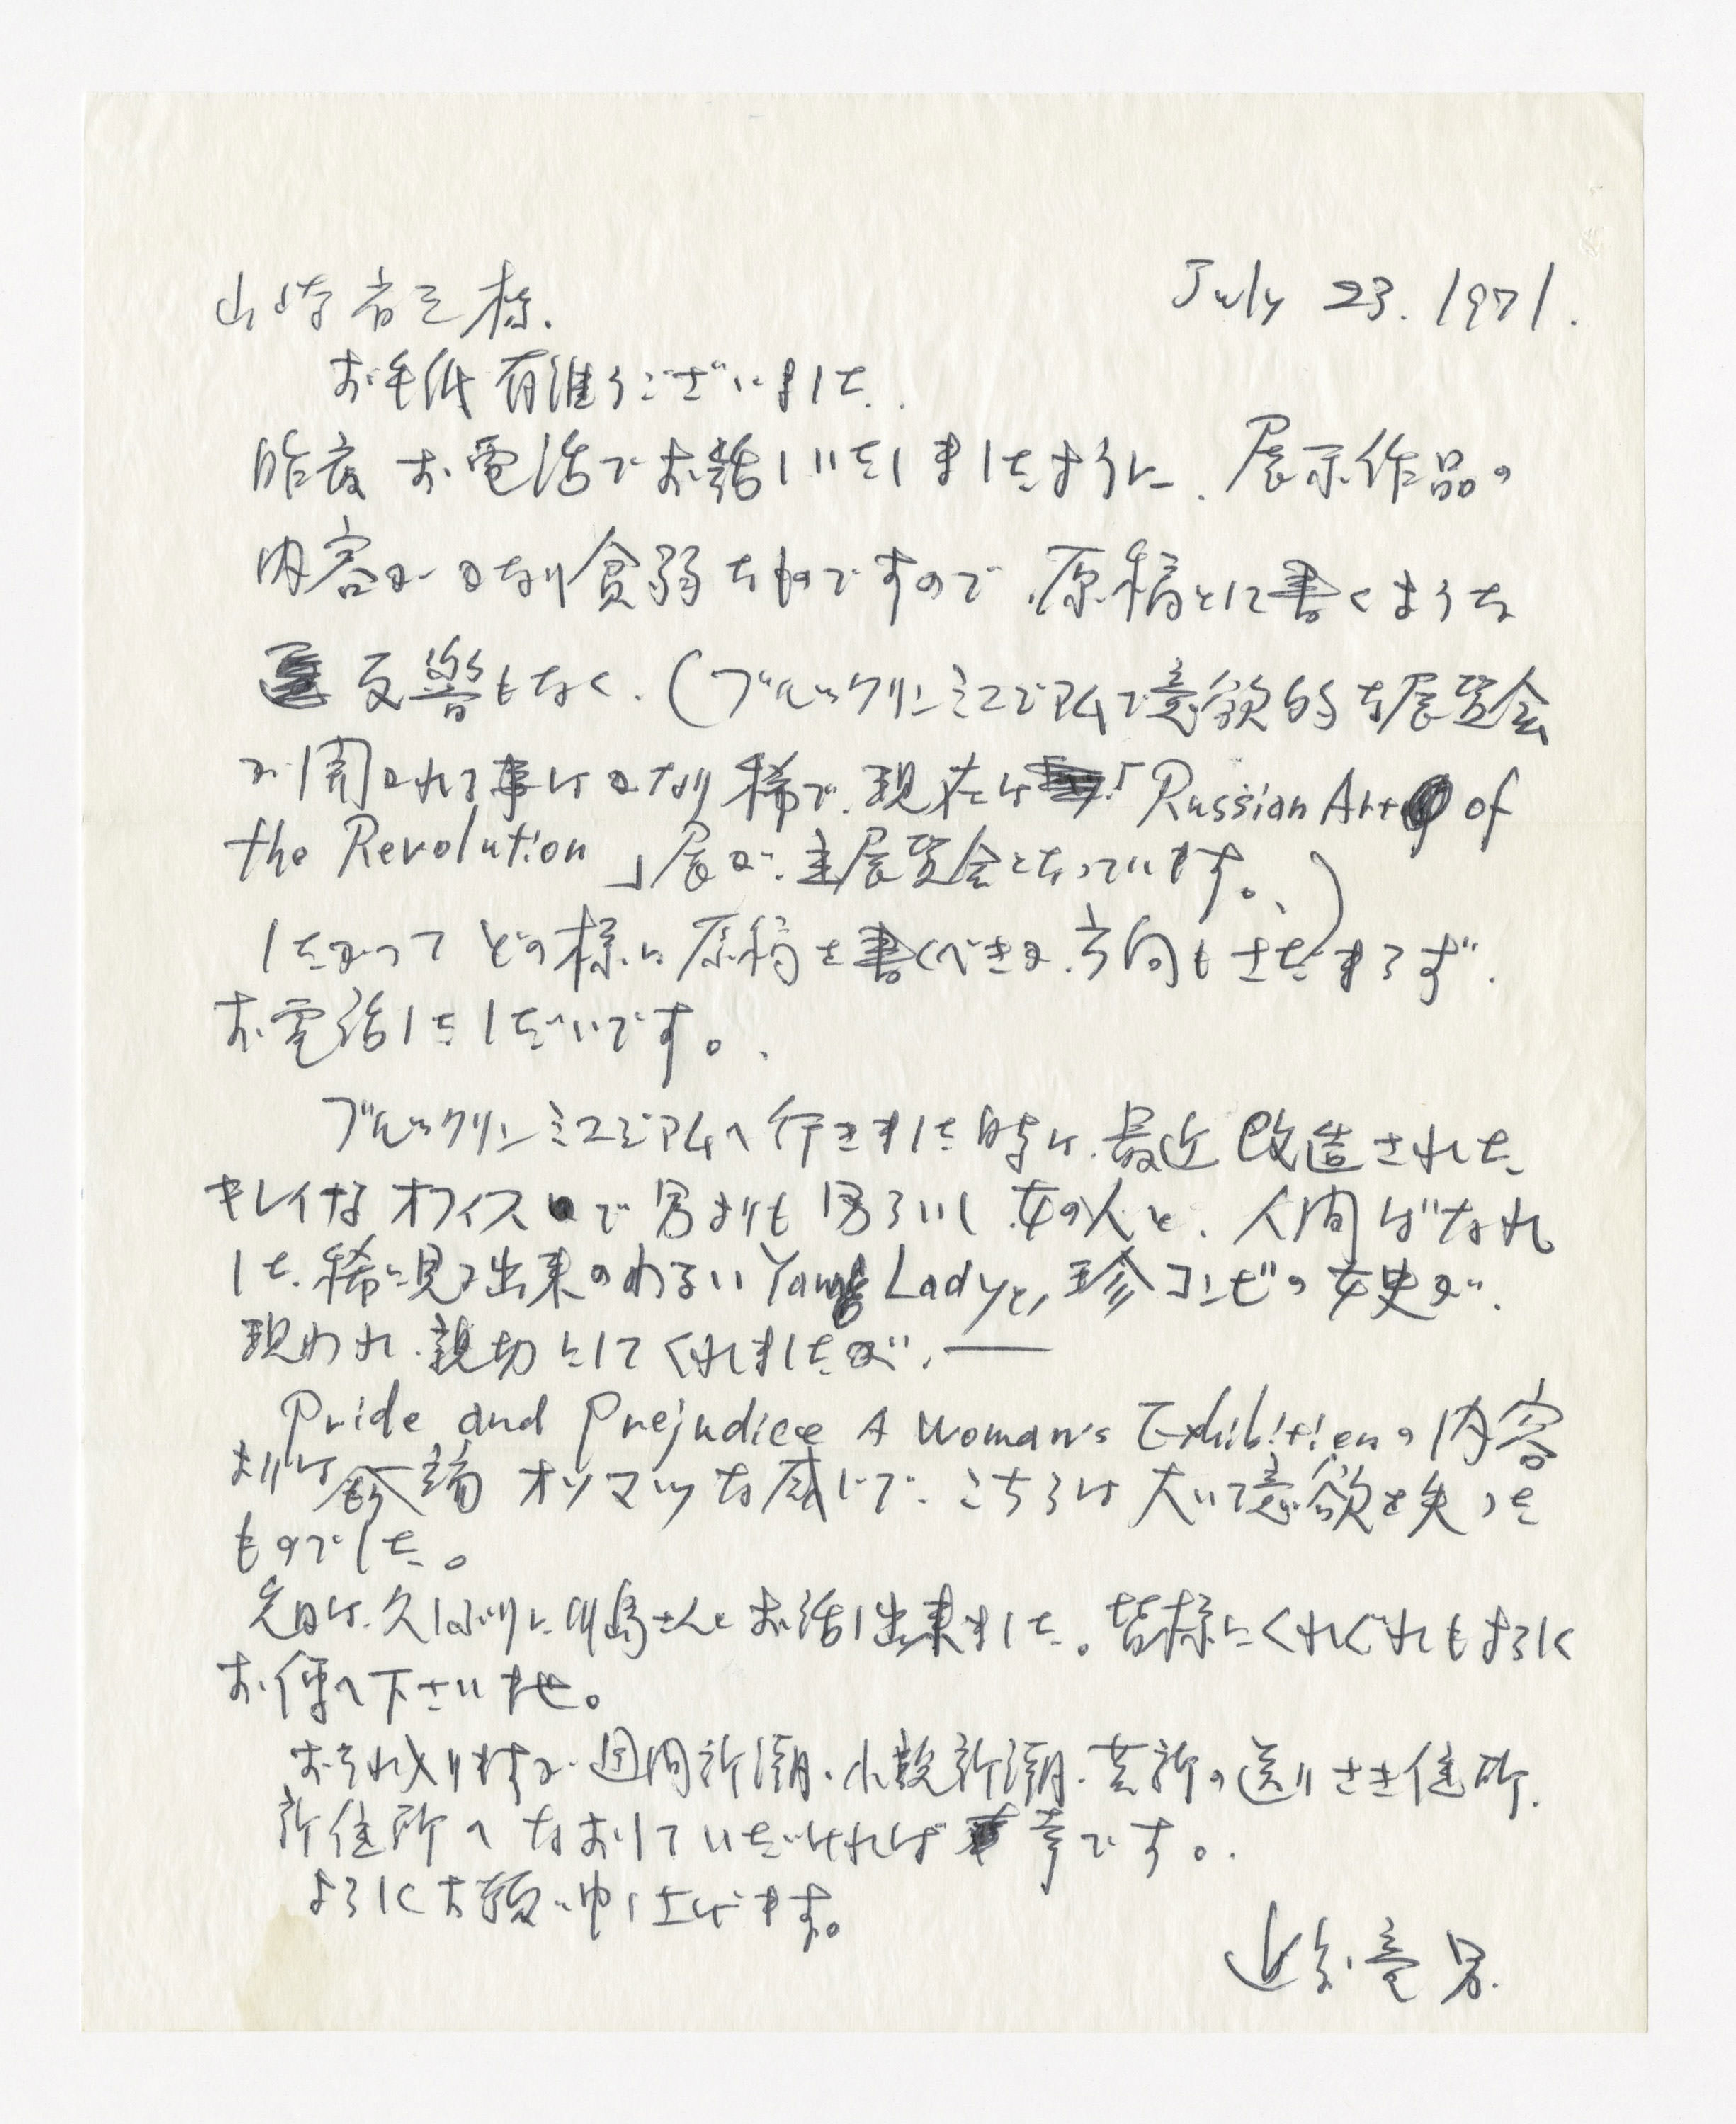 山崎省三様.
July 23. 1971.
お手紙有難うございました.
昨夜 お電話でお話しいたしましたように、展示作品の
内容がかなり貧弱なものですので、原稿とに書くような
反響もなく、(ブルックリンミュジアムで意欲的な展覧会
が開かれる事はかなり稀で、現在は「Russian Art of
the Revolution」展が、主展覧会となっています。)
したがってどの様に原稿を書くべきか、方向もさだまらず、
お電話したしだいです。
ブルックリンミュジアムへ行きました時は、最近改造された
キレイなオフィスで男よりも男らしい女の人と、人間ばなれ
した、稀に見る出来のわるいYoung Ladyと、珍コンビの女史が、
現われ、親切にしてくれましたが、——
Pride and Prejudice A Woman's Exhibitionの内容
よりは オソマツな感じで、こちらは大いに意欲を失った
ものでした。
先日は、久しぶりに川島さんとお話し出来ました。皆様にくれぐれもよろしく
お伝へ下さいませ。
おそれ入りますが、週間新潮・小説新潮・芸新の送りさき住所、
新住所へなおしていただければ幸です。
よろしくお願い申し上げます。
近藤竜男.